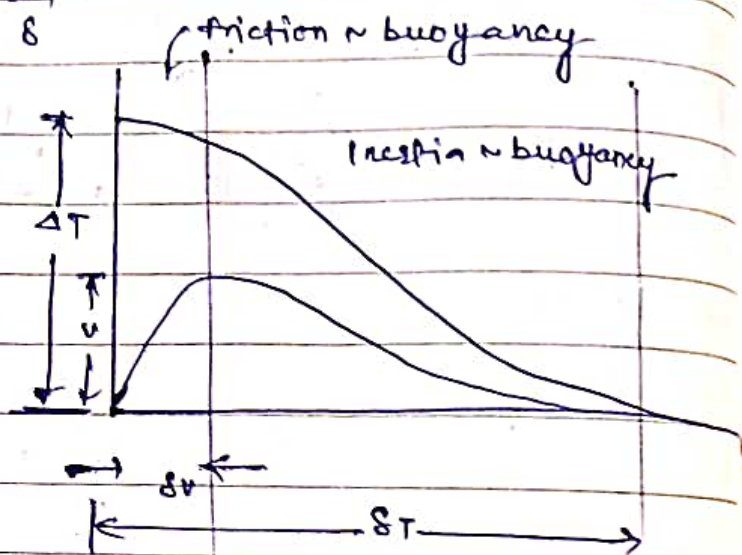 δ
friction ~ buoyancy
Inertia ~ buoyancy
ΔT
v
δv
δT